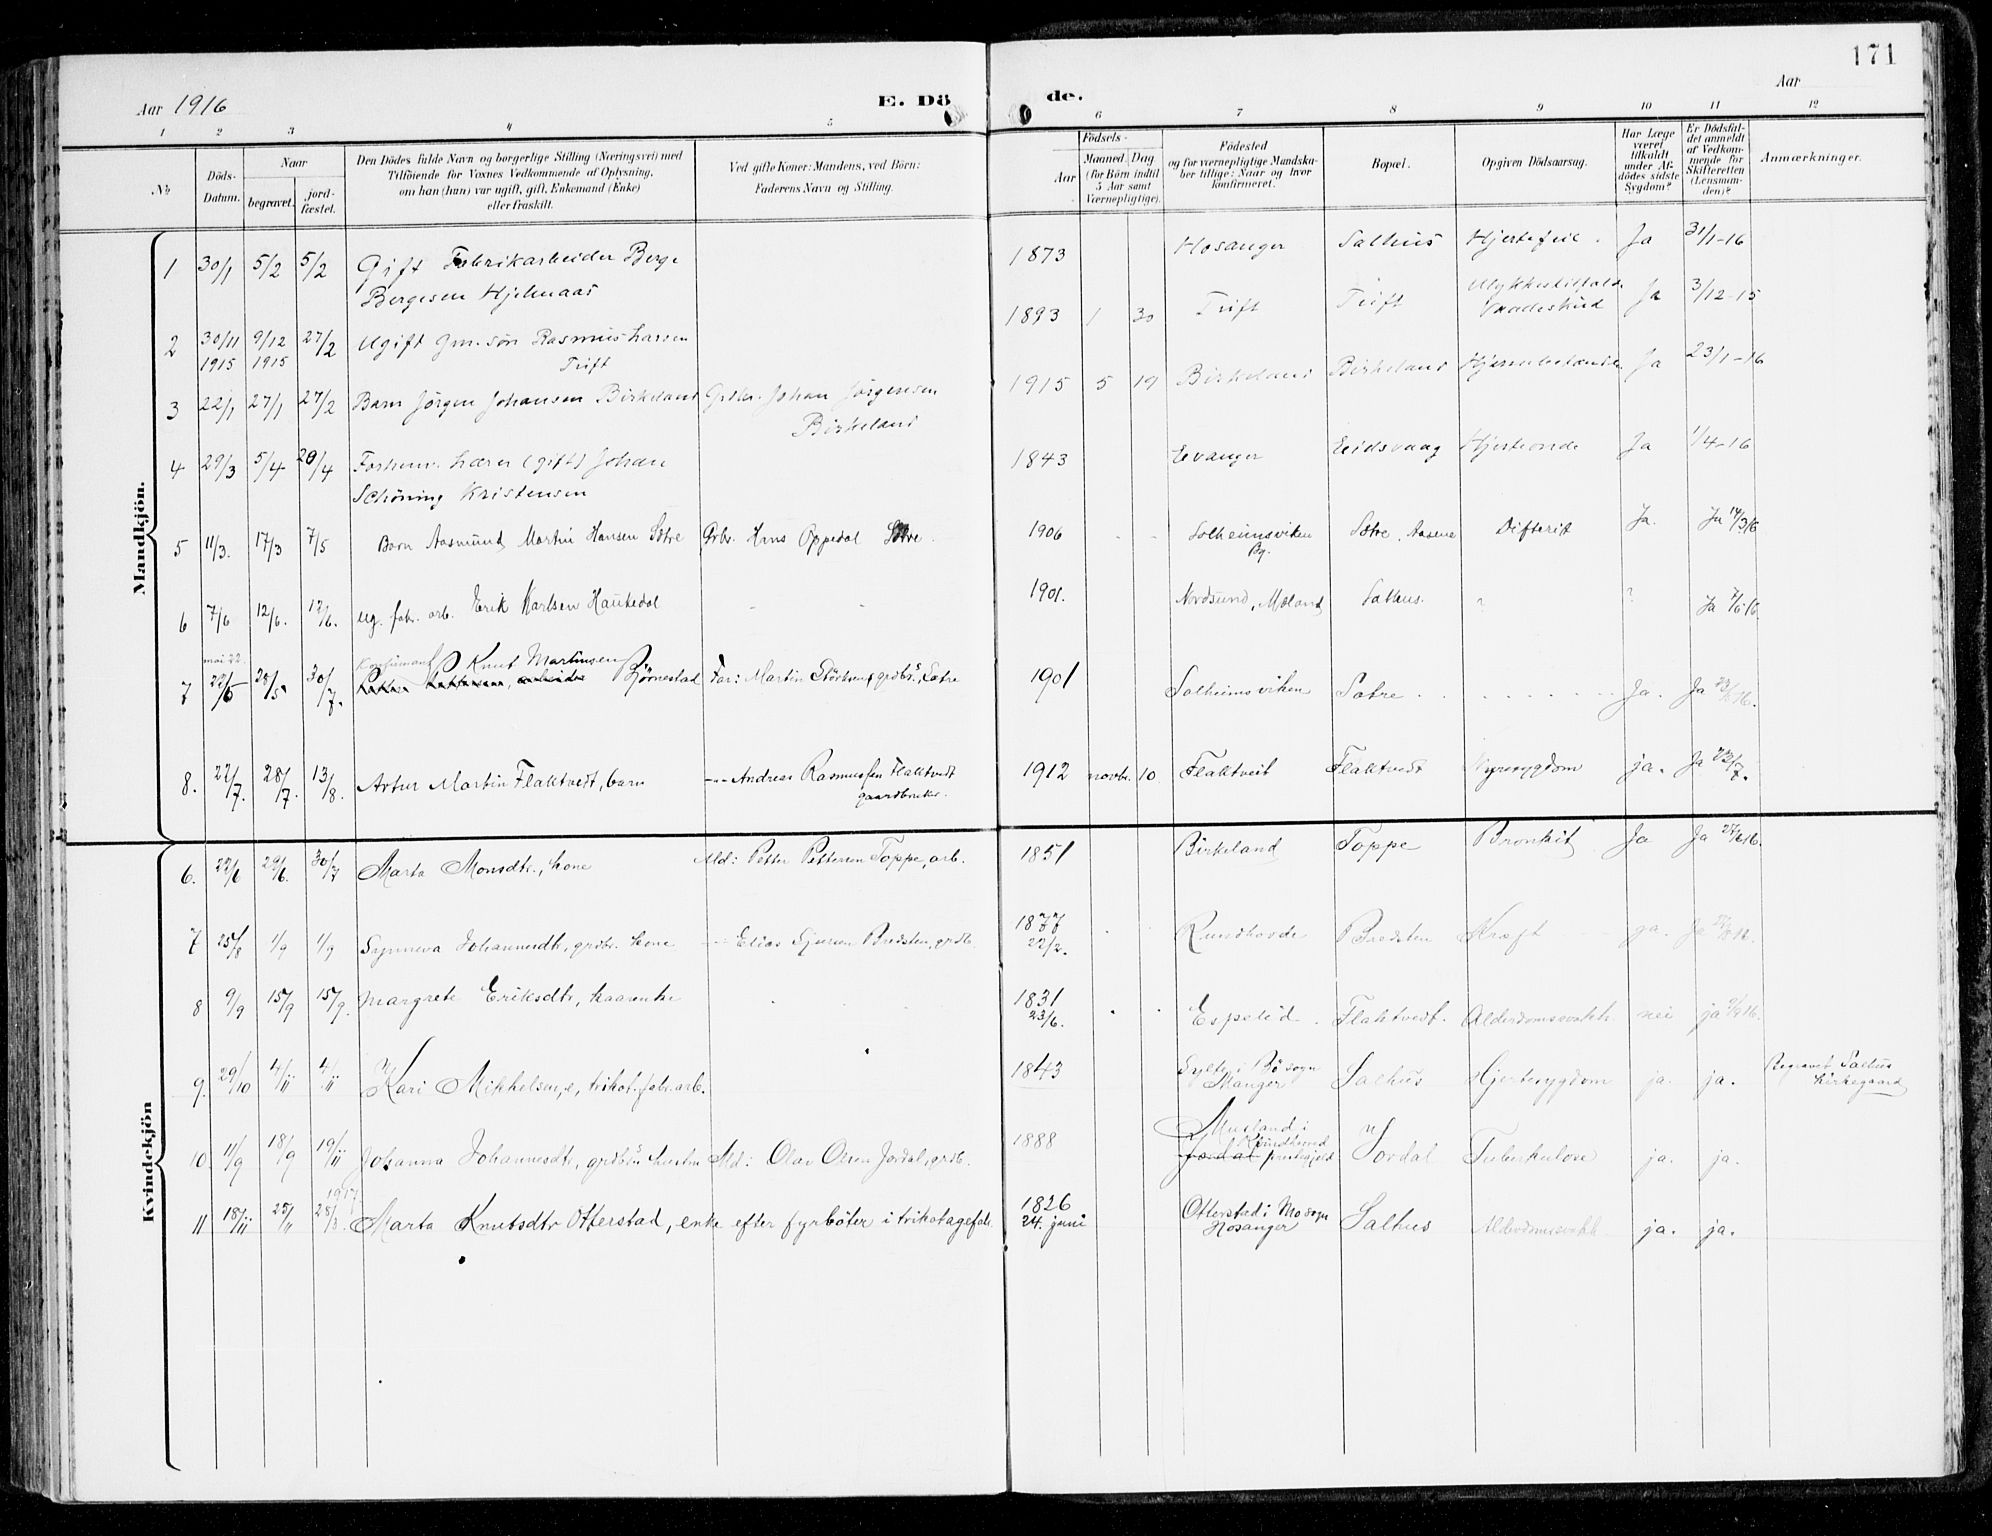 171
Aar 1916
E. Dö
de.
Aar
1 2 3 4 5 6 7 8 9 10 11 12
No
Döds-Datum.
Naar
begravet.
jord-fæstet.
Den Dödes fulde Navn og borgerlige Stilling (Næringsvei) med
Tilföiende for Voxnes Vedkommende af Oplysning,
om han (hun) var ugift, gift, Enkemand (Enke)
eller fraskilt.
Ved gifte Koner: Mandens, ved Börn:
Faderens Navn og Stilling.
Födsels-
Aar
Maaned. Dag
(for Börn indtil
5 Aar samt
Værnepligtige).
Födested
og for værnepligtige Mandska-
ber tillige: Naar og hvor
konfirmeret.
Bopæl.
Opgiven Dödsaarsag.
Har Læge
været
tilkaldt
under Af-
dødes sidste
Sygdom?
Er Dödsfal-
det anmeldt
af Vedkom-
mende for
Skifteretten
(Lensman-
den)?
Anmærkninger.
Mandkjön.
1 30/1 5/2 5/2 Gift Fabrikarbeider Berge 1873 Hosanger Salhus Hjertefeil. Ja 31/1-16
Bergesen Hjelmaas
2 30/11 1915 9/12 1915 27/2 Ugift Gm. sön Rasmus Larsen 1893 1 30 Tuft Tuft Ulykkestilfælde Ja 3/12-15
Tuft Vaadeskud
3 22/1 27/1 27/2 Barn Jörgen Johansen Birkeland Grdbr. Johan Jörgensen 1915 5 19 Birkeland Birkeland Ja 23/1-16
Birkeland
4 29/3 5/4 20/4 Forhenv. Lærer (gift) Johan 1843 Evanger Eidsvaag Hjerteonde Ja 1/4-16
Schöning Kristensen
5 11/3. 17/3 7/5 Barn Aasmund Martin Hansen Sætre Grbr. Hans Oppedal Sætre. 1906 Solheimsviken Bg. Sætre, Aasene Difterit Ja. Ja 14/3 16
6 7/6 12/6. 12/6. ug. fabr. arb. Erik Karlsen Haukedal 1901. Nordsund, Mæland Salhus. ? ? Ja 7/6 16.
mai 22
Konfirmant Knut Martinsen
7 22/5 28/5 30/7. Petter Pettersen, arbeider Björnestad Far: Martin Störksen, grdbr., Sætre 1901 Solheimsviken Sætre Ja. Ja 16.
8. 22/7. 28/7. 13/8. Artur Martin Flaktvedt, barn -"- Andreas Rasmussen Flaktvedt 1912 novbr. 10. Flaktveit Flaktvedt Nyresygdom ja. Ja 22/7.
gaardbruker.
Kvindekjön
6. 22/6 29/6. 30/7 Marta Monsdtr., kone Md: Petter Pettersen Toppe, arb. 1851 Birkeland Toppe Bronkit Ja Ja 16.
7 25/8 1/9 1/9 Synneva Johannesdtr, grdbr. kone -"- Elias Bredsten, grdb. 1877 22/2. Rundhovde Bredsten Kræft ja. Ja 16.
8 9/9 15/9 15/9. Margrete Eriksdtr, kaarenke 1831 23/6. Espelid. Flaktvedt. Alderdomssvakh. nei ja 9/9 16.
9. 29/10 4/11 4/11 Kari Mikkelsen, e, trikot. fabr. arb. 1843 Sylta i Bö sogn Manger Salhus Hjertesygdom ja. ja. Begravet Salhus Kirkegaard
10 11/9 18/9 19/11 Johanna Johannesdtr, grdbr. hustru Md: Olav Olsen Jordal, grdb. 1888 Musland i Kvindherred Jordal prestegjeld Jordal Tuberkulose ja. ja.
11 18/11 25/11 1917 28/3. Marta Knutsdtr Otterstad, enke efter fyrböter i trikotagefabr. 1826 24. juni Otterstad i Mo sogn Hosanger Salhus Alderdomssvakh ja. ja.